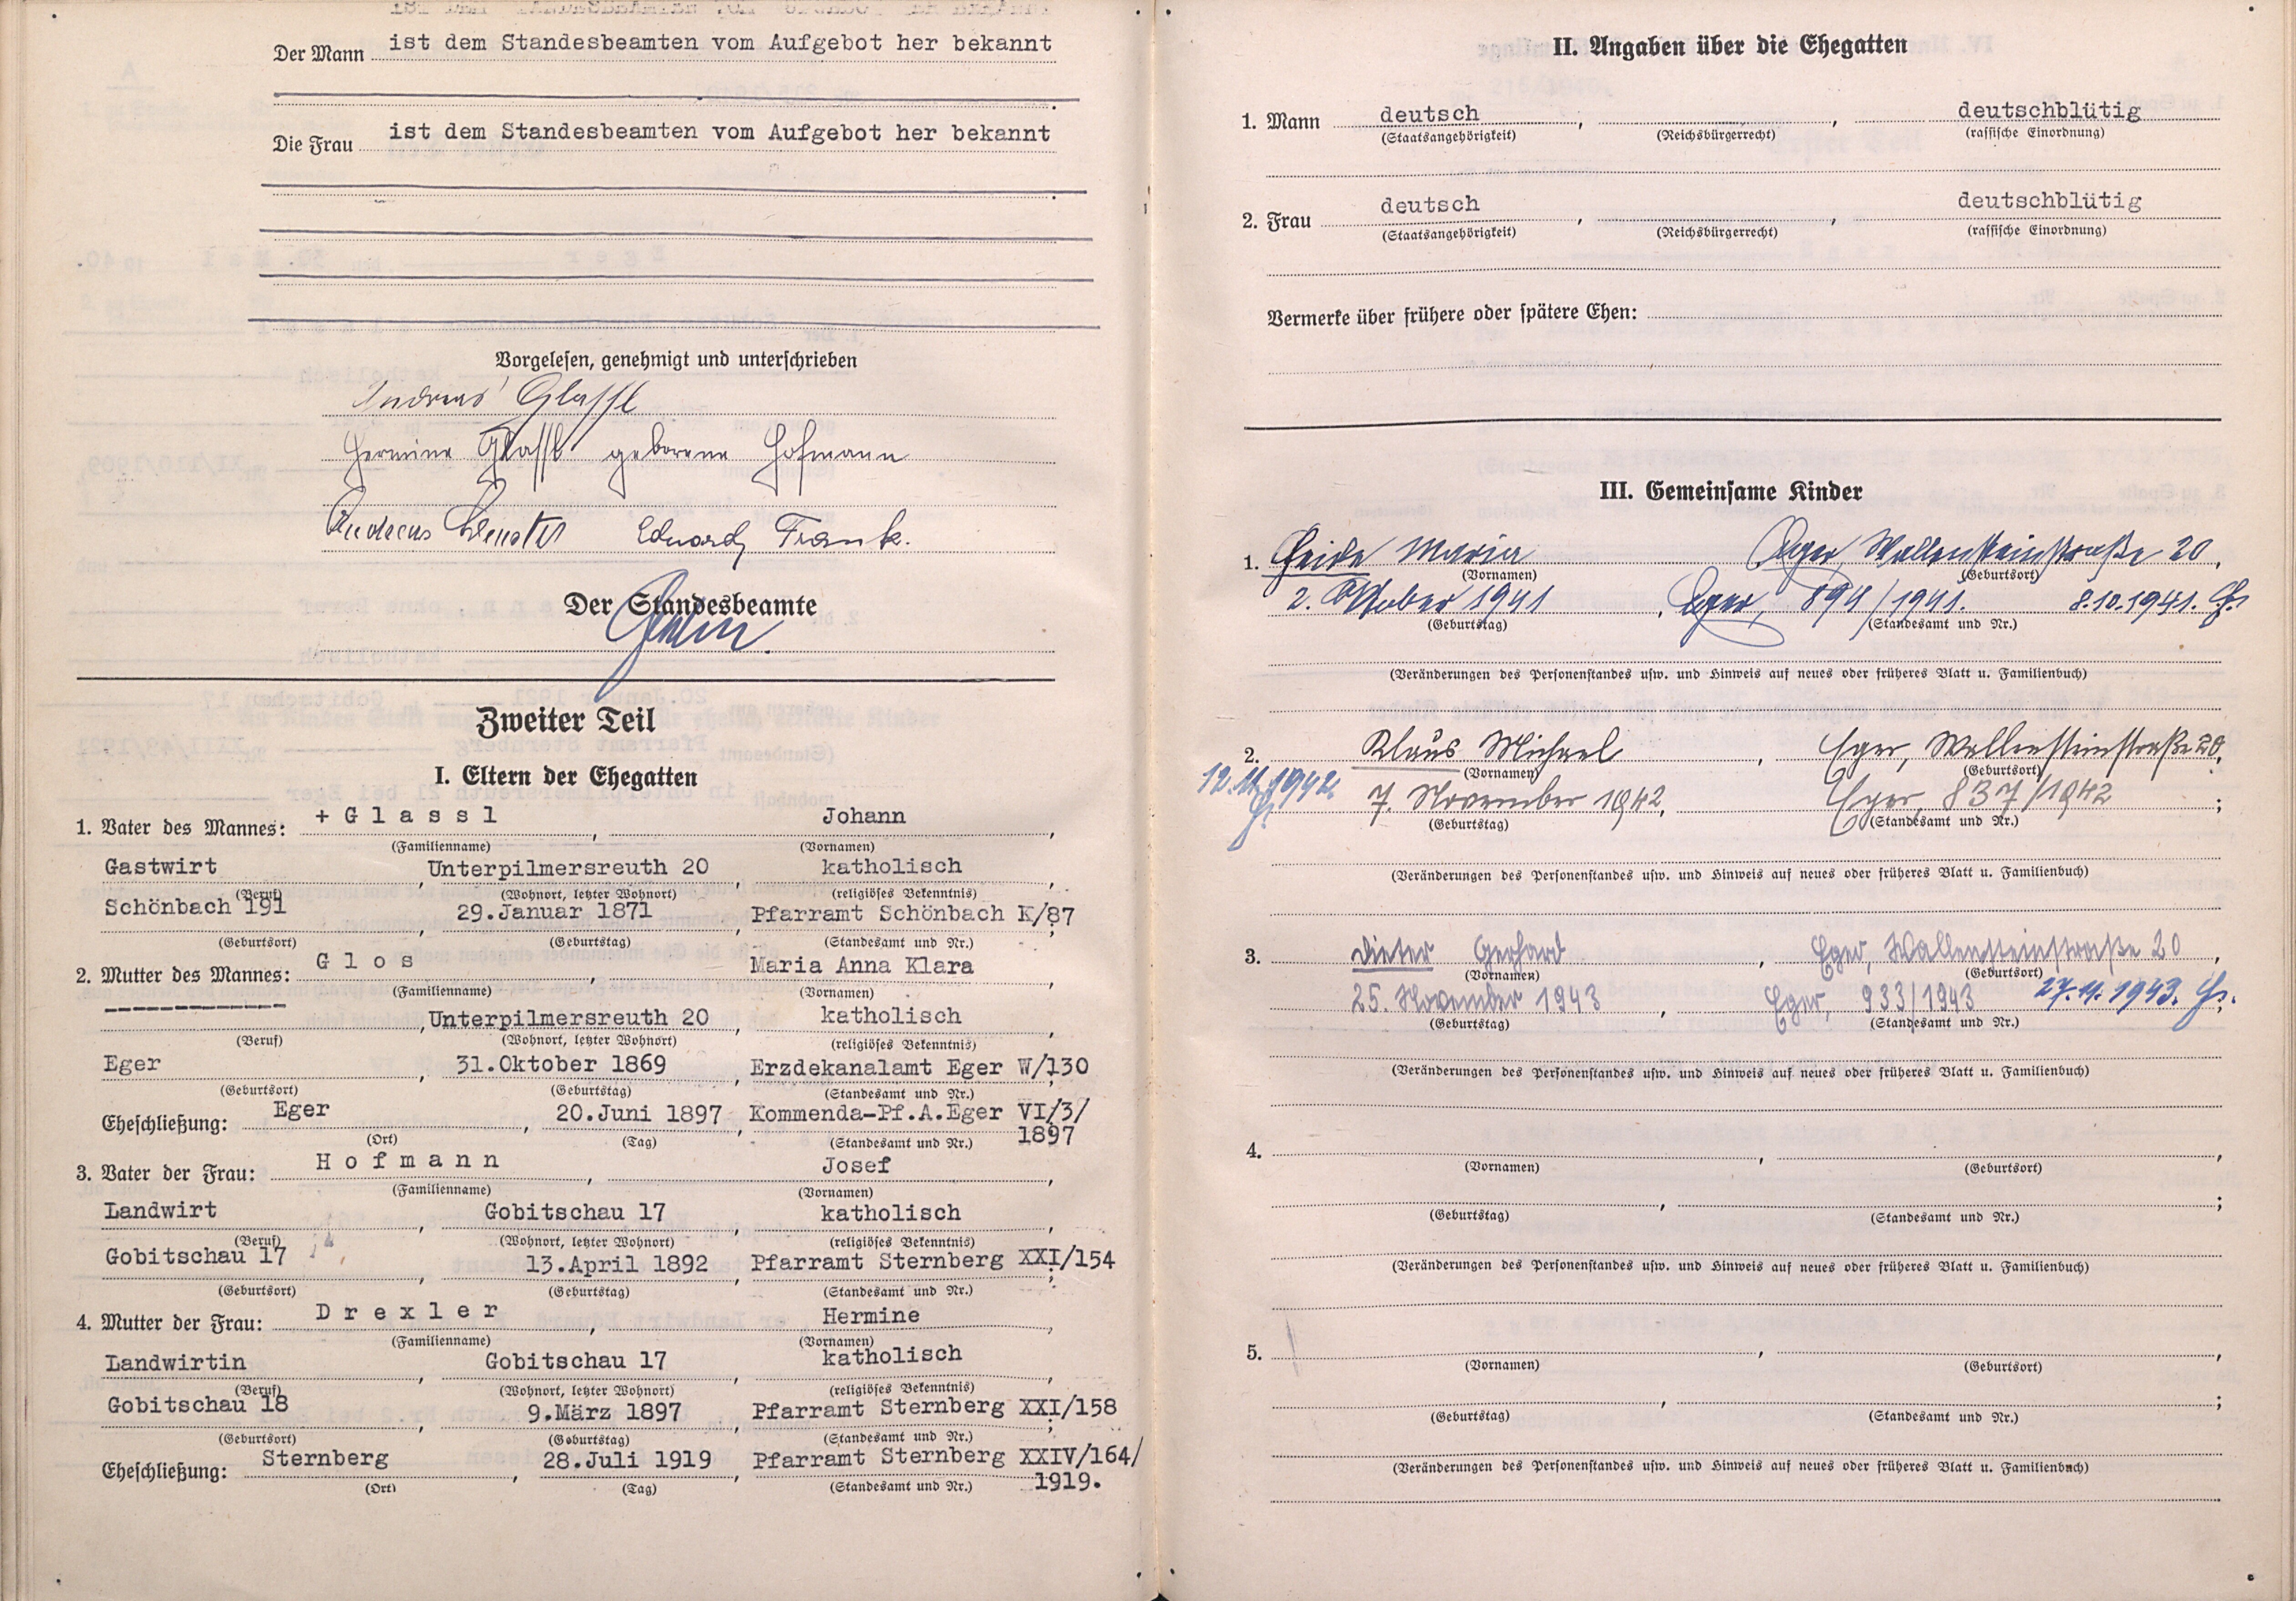 Der Mann ist dem Standesbeamten vom Aufgebot her bekannt
Die Frau ist dem Standesbeamten vom Aufgebot her bekannt
Vorgelesen, genehmigt und unterschrieben
Andreas Glassl
Hermine Glassl geborene Hofmann
Andreas Eduard Frank.
Der Standesbeamte
Zweiter Teil
I. Eltern der Ehegatten
1. Vater des Mannes: + Glassl, Johann,
(Familienname) (Vornamen)
Gastwirt, Unterpilmersreuth 20, katholisch,
(Beruf) (Wohnort, letzter Wohnort) (religiöses Bekenntnis)
Schönbach 191, 29.Januar 1871, Pfarramt Schönbach K/87;
(Geburtsort) (Geburtstag) (Standesamt und Nr.)
2. Mutter des Mannes: Glos, Maria Anna Klara,
(Familienname) (Vornamen)
------------, Unterpilmersreuth 20, katholisch,
(Beruf) (Wohnort, letzter Wohnort) (religiöses Bekenntnis)
Eger, 31.Oktober 1869, Erzdekanalamt Eger W/130;
(Geburtsort) (Geburtstag) (Standesamt und Nr.)
Eheschließung: Eger, 20.Juni 1897, Kommenda-Pf.A.Eger VI/3/
1897
(Ort) (Tag) (Standesamt und Nr.)
3. Vater der Frau: Hofmann, Josef,
(Familienname) (Vornamen)
Landwirt, Gobitschau 17, katholisch,
(Beruf) (Wohnort, letzter Wohnort) (religiöses Bekenntnis)
Gobitschau 17, 13.April 1892, Pfarramt Sternberg XXI/154;
(Geburtsort) (Geburtstag) (Standesamt und Nr.)
4. Mutter der Frau: Drexler, Hermine,
(Familienname) (Vornamen)
Landwirtin, Gobitschau 17, katholisch,
(Beruf) (Wohnort, letzter Wohnort) (religiöses Bekenntnis)
Gobitschau 18, 9.März 1897, Pfarramt Sternberg XXI/158;
(Geburtsort) (Geburtstag) (Standesamt und Nr.)
Eheschließung: Sternberg, 28.Juli 1919, Pfarramt Sternberg XXIV/164/
1919.
(Ort) (Tag) (Standesamt und Nr.)
II. Angaben über die Ehegatten
1. Mann deutsch, , deutschblütig
(Staatsangehörigkeit) (Reichsbürgerrecht) (rassische Einordnung)
2. Frau deutsch, , deutschblütig
(Staatsangehörigkeit) (Reichsbürgerrecht) (rassische Einordnung)
Vermerke über frühere oder spätere Ehen:
III. Gemeinsame Kinder
1. Heide Maria Eger, Wallensteinstraße 20,
(Vornamen) (Geburtsort)
2. Oktober 1941, Eger, 894/1941. 8.10.1941.
(Geburtstag) (Standesamt und Nr.)
(Veränderungen des Personenstandes usw. und Hinweis auf neues oder früheres Blatt u. Familienbuch)
2. Klaus Michael, Eger, Wallensteinstraße 20,
(Vornamen) (Geburtsort)
12.11.1942. 7. November 1942, Eger, 837/1942;
(Geburtstag) (Standesamt und Nr.)
(Veränderungen des Personenstandes usw. und Hinweis auf neues oder früheres Blatt u. Familienbuch)
3. Dieter Gerhard, Eger, Wallensteinstraße 20,
(Vornamen) (Geburtsort)
25. November 1943, Eger, 933/1943 27.11.1943.
(Geburtstag) (Standesamt und Nr.)
(Veränderungen des Personenstandes usw. und Hinweis auf neues oder früheres Blatt u. Familienbuch)
4. , ,
(Vornamen) (Geburtsort)
, ;
(Geburtstag) (Standesamt und Nr.)
(Veränderungen des Personenstandes usw. und Hinweis auf neues oder früheres Blatt u. Familienbuch)
5. , ,
(Vornamen) (Geburtsort)
, ;
(Geburtstag) (Standesamt und Nr.)
(Veränderungen des Personenstandes usw. und Hinweis auf neues oder früheres Blatt u. Familienbuch)